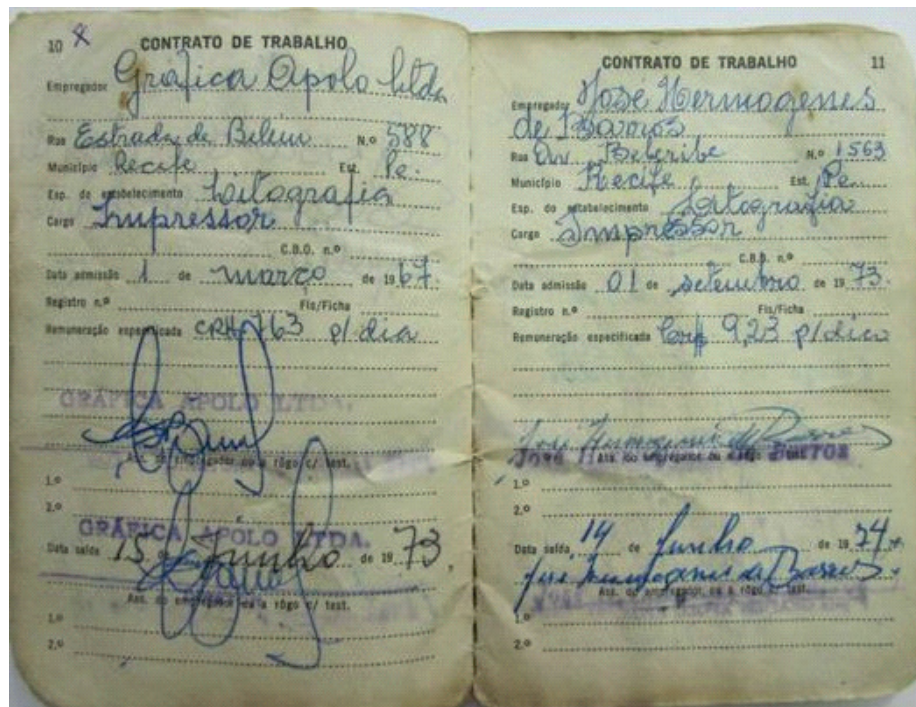 10 8 CONTRATO DE TRABALHO
Empregador Gráfica Apolo Ltda
Rua Estrada de Belém N.º 588
Município Recife Est. Pe.
Esp. do estabelecimento Litografia
Cargo Impressor
C.B.O. n.º
Data admissão 1 de março de 1967.
Registro n.º Fls/Ficha
Remuneração especificada 763 p/ dia
GRÁFICA APOLO LTDA.
Ass. do empregador ou a rôgo c/ test.
1.º
2.º
GRÁFICA APOLO LTDA.
Data saída 15 de Junho de 1973,
Ass. do empregador ou a rôgo c/ test.
1.º
2.º
CONTRATO DE TRABALHO 11
Empregador José Hermogenes
de Barros
Rua Av. Beberibe N.º 1563
Município Recife Est. Pe
Esp. do estabelecimento Litografia
Cargo Impressor
C.B.O. n.º
Data admissão 01 de setembro de 1973.
Registro n.º Fls/Ficha
Remuneração especificada Cr$ 9,23 p/ dia
José Hermogenes de Barros
Ass. do empregador ou a rôgo
1.º
2.º
Data saída 14 de Junho de 1974.
José Hermogenes de Barros
Ass. do empregador ou a rôgo c/ test.
1.º
2.º